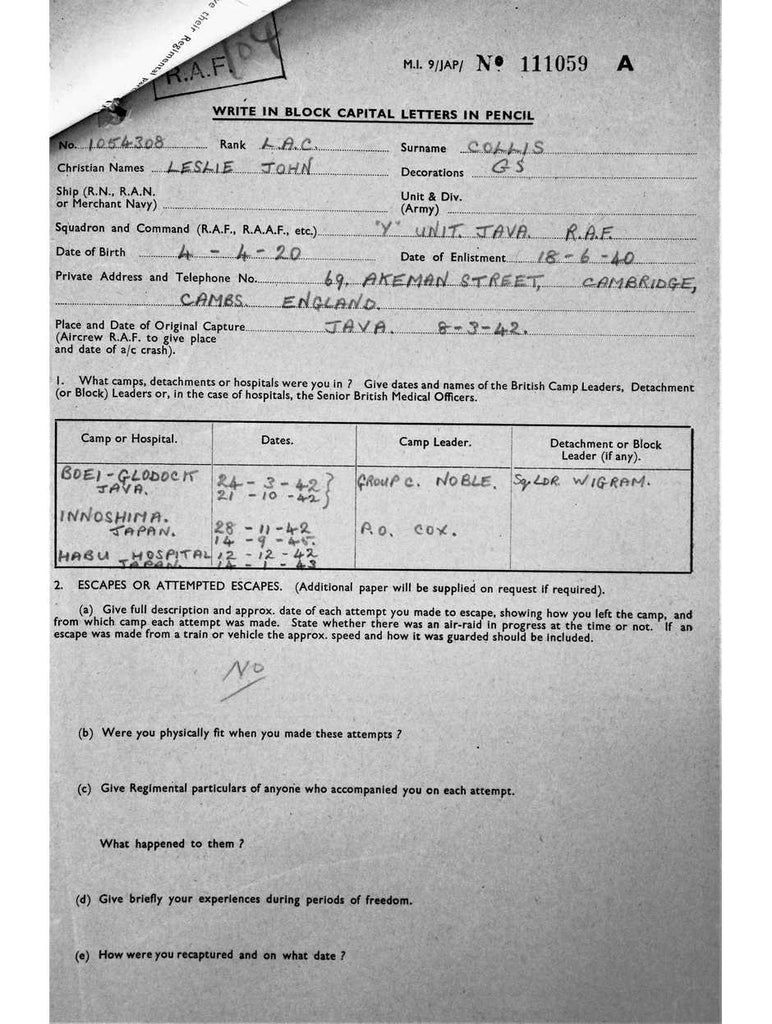 ve their Regimental
R.A.F. 104
M.I. 9/JAP/ Nº 111059 A
WRITE IN BLOCK CAPITAL LETTERS IN PENCIL
No. 1054308 Rank L.A.C. Surname COLLIS
Christian Names LESLIE JOHN Decorations GS
Ship (R.N., R.A.N.
or Merchant Navy)
Unit & Div.
(Army)
Squadron and Command (R.A.F., R.A.A.F., etc.) "Y" UNIT. JAVA. R.A.F.
Date of Birth 4 - 4 - 20 Date of Enlistment 18 - 6 - 40
Private Address and Telephone No. 69, AKEMAN STREET, CAMBRIDGE,
CAMBS. ENGLAND.
Place and Date of Original Capture JAVA. 8-3-42.
(Aircrew R.A.F. to give place
and date of a/c crash).
1. What camps, detachments or hospitals were you in ? Give dates and names of the British Camp Leaders, Detachment
(or Block) Leaders or, in the case of hospitals, the Senior British Medical Officers.
Camp or Hospital. Dates. Camp Leader. Detachment or Block
Leader (if any).
BOEI-GLODOCK 24 - 3 - 42 GROUP C. NOBLE. Sq. LDR WIGRAM.
JAVA. 21 - 10 - 42
INNOSHIMA.
JAPAN. 28 - 11 - 42 P.O. COX.
14 - 9 - 45.
HABU HOSPITAL 12 - 12 - 42
JAPAN. 14 - 1 - 43
2. ESCAPES OR ATTEMPTED ESCAPES. (Additional paper will be supplied on request if required).
(a) Give full description and approx. date of each attempt you made to escape, showing how you left the camp, and
from which camp each attempt was made. State whether there was an air-raid in progress at the time or not. If an
escape was made from a train or vehicle the approx. speed and how it was guarded should be included.
NO
(b) Were you physically fit when you made these attempts ?
(c) Give Regimental particulars of anyone who accompanied you on each attempt.
What happened to them ?
(d) Give briefly your experiences during periods of freedom.
(e) How were you recaptured and on what date ?